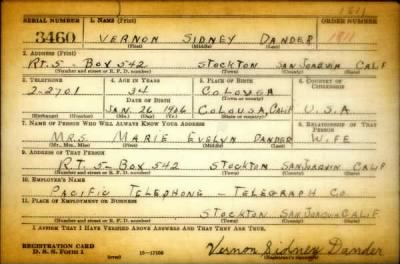 1811
SERIAL NUMBER 1. NAME (Print) ORDER NUMBER
3460 VERNON SIDNEY DANDER 1811
(First) (Middle) (Last)
2. ADDRESS (Print)
RT. 5 - BOX 542 STOCKTON SAN JOAQUIN CALIF
(Number and street or R. F. D. number) (Town) (County) (State)
3. TELEPHONE 4. AGE IN YEARS 5. PLACE OF BIRTH 6. COUNTRY OF CITIZENSHIP
2-2701 34 COLOUSA
DATE OF BIRTH
JAN. 26 1906 COLOUSA, CALIF U.S.A
7. NAME OF PERSON WHO WILL ALWAYS KNOW YOUR ADDRESS 8. RELATIONSHIP OF THAT PERSON
MRS. MARIE EVELYN DANDER WIFE
(Mr., Mrs., Miss) (First) (Middle) (Last)
9. ADDRESS OF THAT PERSON
RT. 5 - BOX 542 STOCKTON SAN JOAQUIN CALIF
(Number and street or R. F. D. number) (Town) (County) (State)
10. EMPLOYER'S NAME
PACIFIC TELEPHONE - TELEGRAPH CO.
11. PLACE OF EMPLOYMENT OR BUSINESS
STOCKTON SAN JOAQUIN CALIF
(Number and street or R. F. D. number) (Town) (County) (State)
I AFFIRM THAT I HAVE VERIFIED ABOVE ANSWERS AND THAT THEY ARE TRUE.
REGISTRATION CARD
D. S. S. Form 1
(over)
Vernon Sidney Dander
(Registrant's signature)